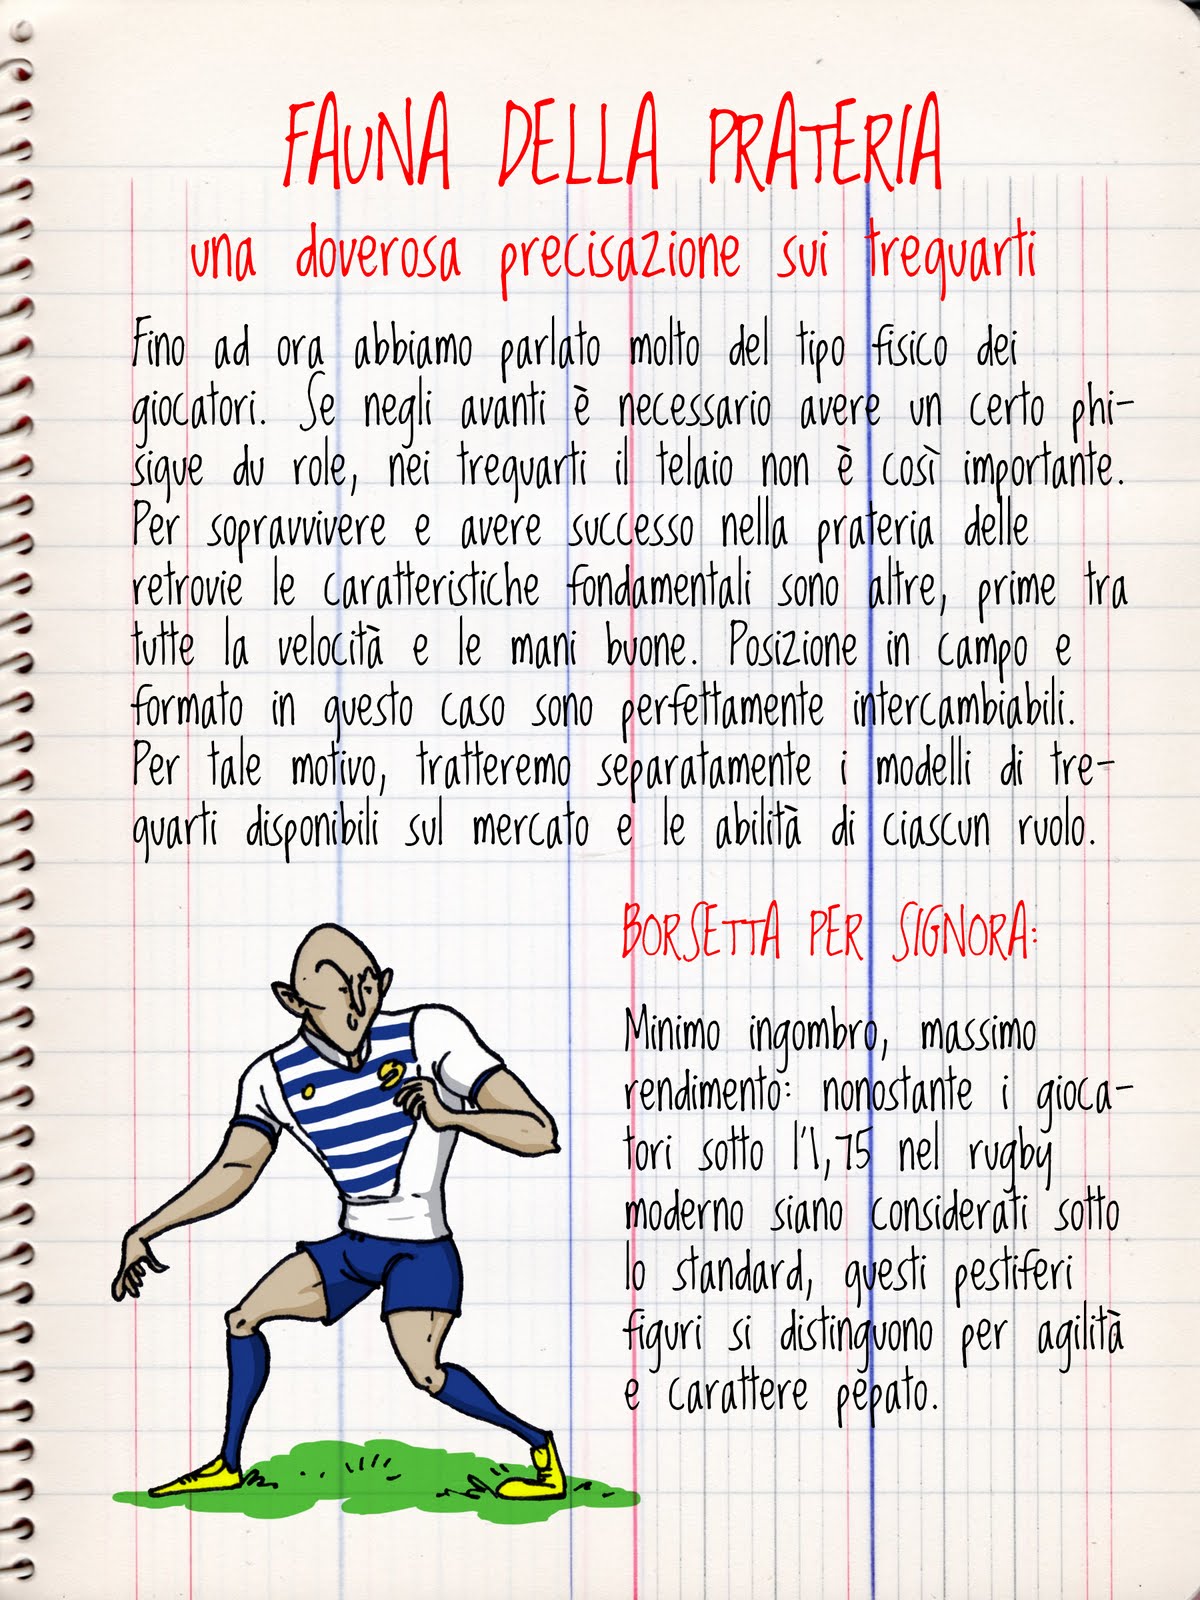 FAUNA DELLA PRATERIA
una doverosa precisazione sui trequarti
Fino ad ora abbiamo parlato molto del tipo fisico dei
giocatori. Se negli avanti è necessario avere un certo phi-
sique du role, nei trequarti il telaio non è così importante.
Per sopravvivere e avere successo nella prateria delle
retrovie le caratteristiche fondamentali sono altre, prime tra
tutte la velocità e le mani buone. Posizione in campo e
formato in questo caso sono perfettamente intercambiabili.
Per tale motivo, tratteremo separatamente i modelli di tre-
quarti disponibili sul mercato e le abilità di ciascun ruolo.
BORSETTA PER SIGNORA:
Minimo ingombro, massimo
rendimento: nonostante i gioca-
tori sotto l'1,75 nel rugby
moderno siano considerati sotto
lo standard, questi pestiferi
figuri si distinguono per agilità
e carattere pepato.